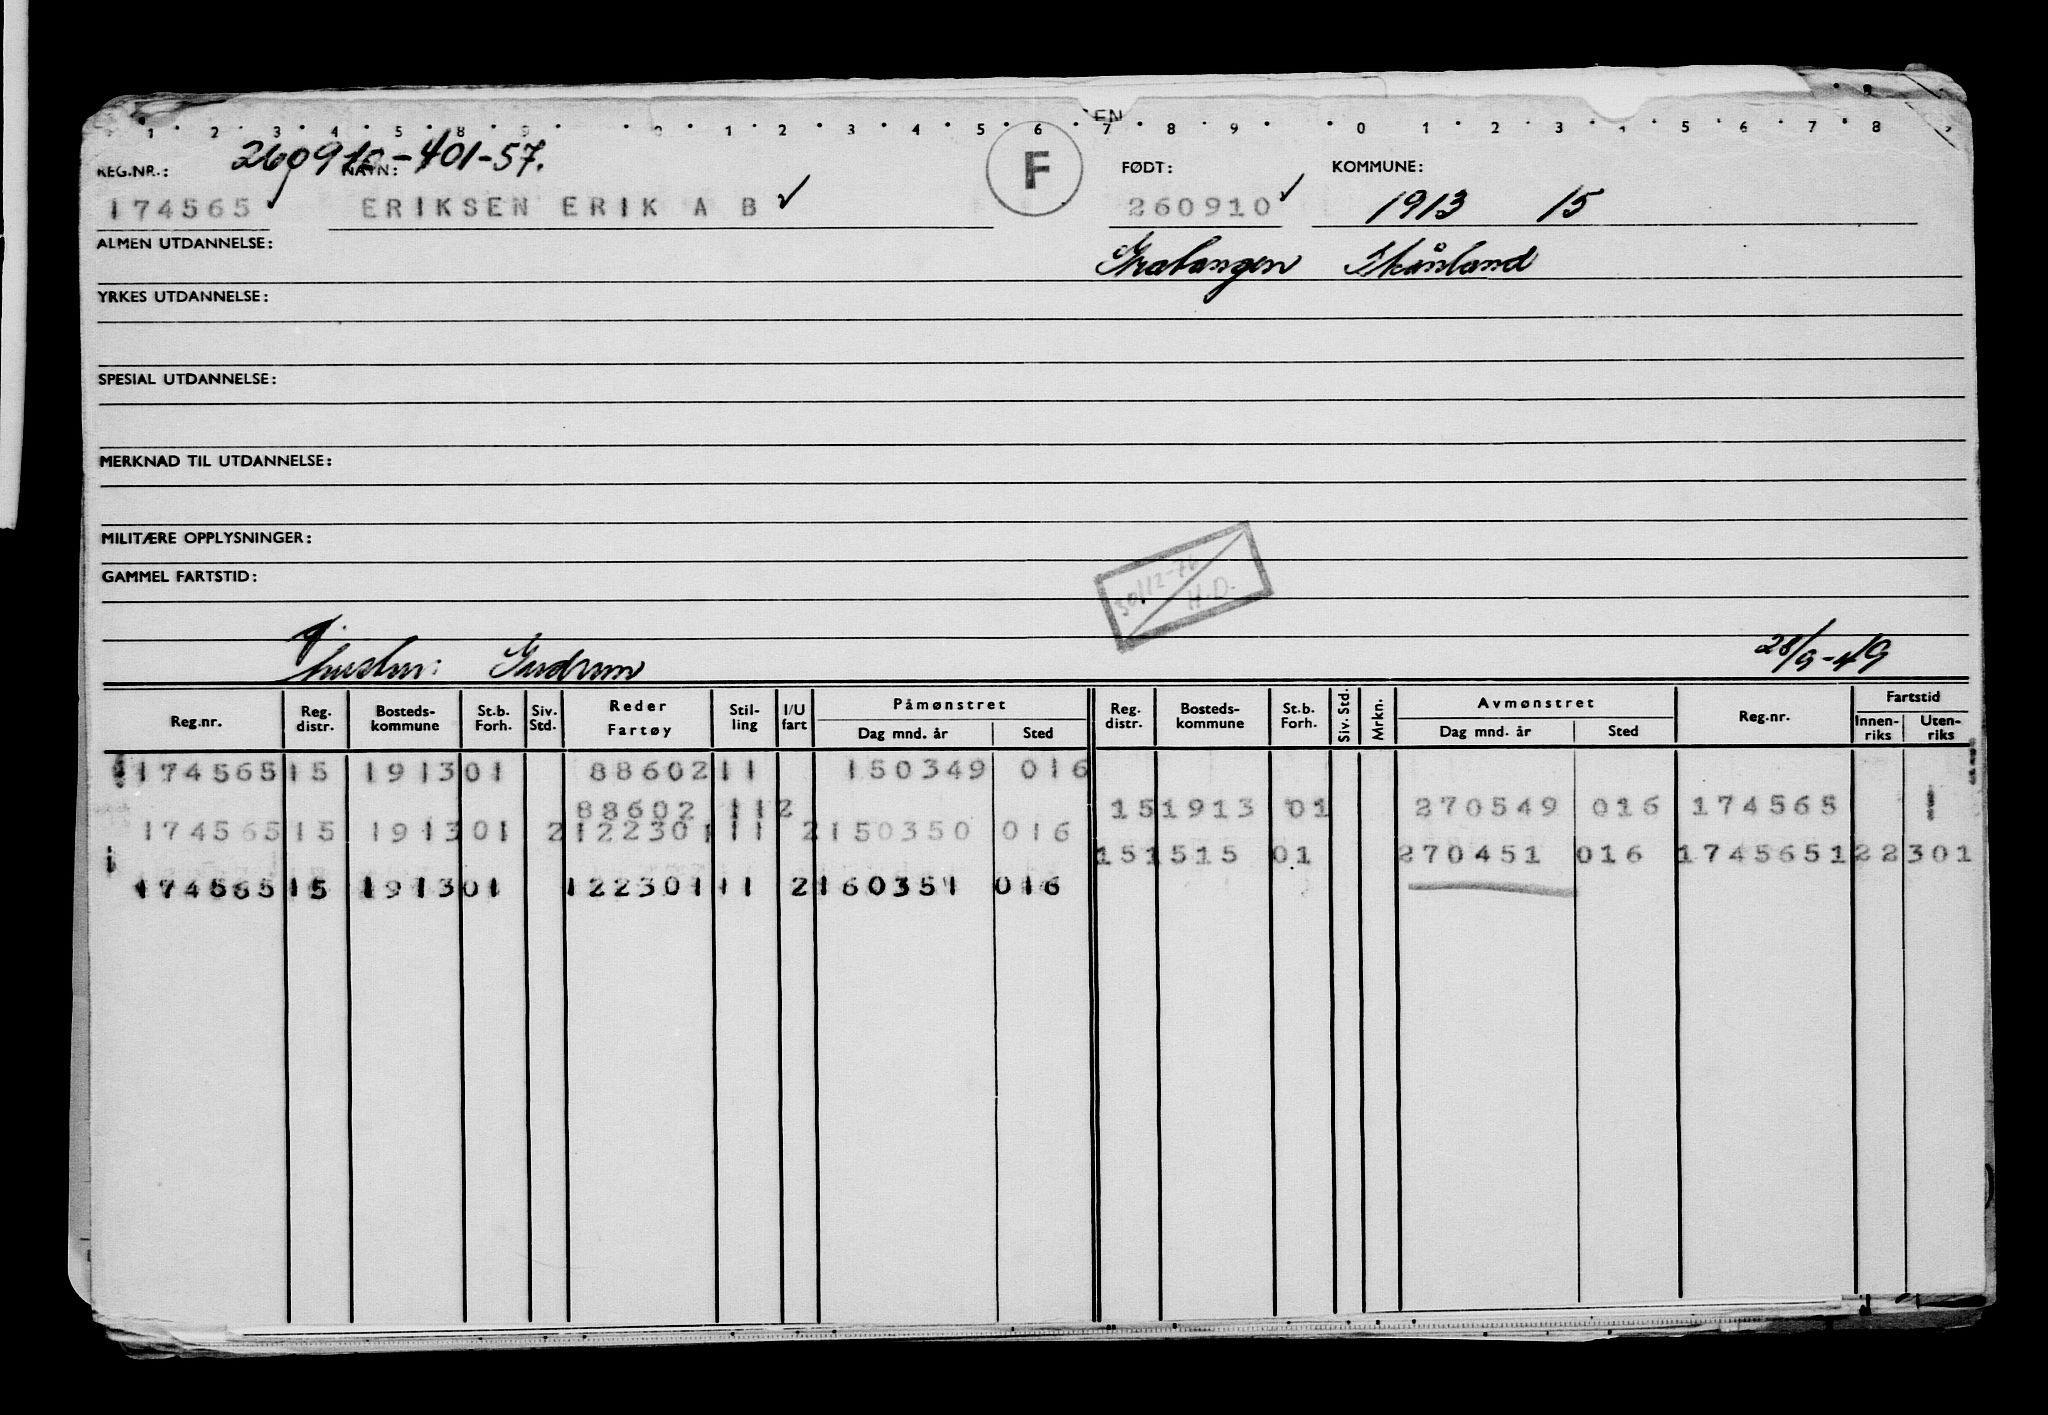 EN
1 2 3 4 5 8 9 0 1 2 3 4 5 6 7 8 9 0 1 2 3 4 5 6 7 8
260910-401-57.
REG.NR.: NAVN: F FØDT: KOMMUNE:
174565 ✓ ERIKSEN ERIK A B ✓ 260910 ✓ 1913 15
ALMEN UTDANNELSE: Gratangen Skånland
YRKES UTDANNELSE:
SPESIAL UTDANNELSE:
MERKNAD TIL UTDANNELSE:
MILITÆRE OPPLYSNINGER:
GAMMEL FARTSTID:
30/12-76
H.D.
hustru: Gudrun 28/9-49
Reg.nr. Reg. distr. Bosteds-kommune St.b. Forh. Siv. Std. Reder Fartøy Stil-ling I/U fart Påmønstret Dag mnd. år Sted Reg. distr. Bosteds-kommune St.b. Forh. Siv. Std. Mrkn. Avmønstret Dag mnd. år Sted Reg.nr. Fartstid Innen-riks Uten-riks
174565 15 1913 01 88602 11 150349 016
88602 11 2 15 1913 01 270549 016 174565 1
174565 15 1913 01 2 122301 11 2 150350 016
15 1515 01 270451 016 174565 122301
174565 15 1913 01 122301 11 2 160351 016